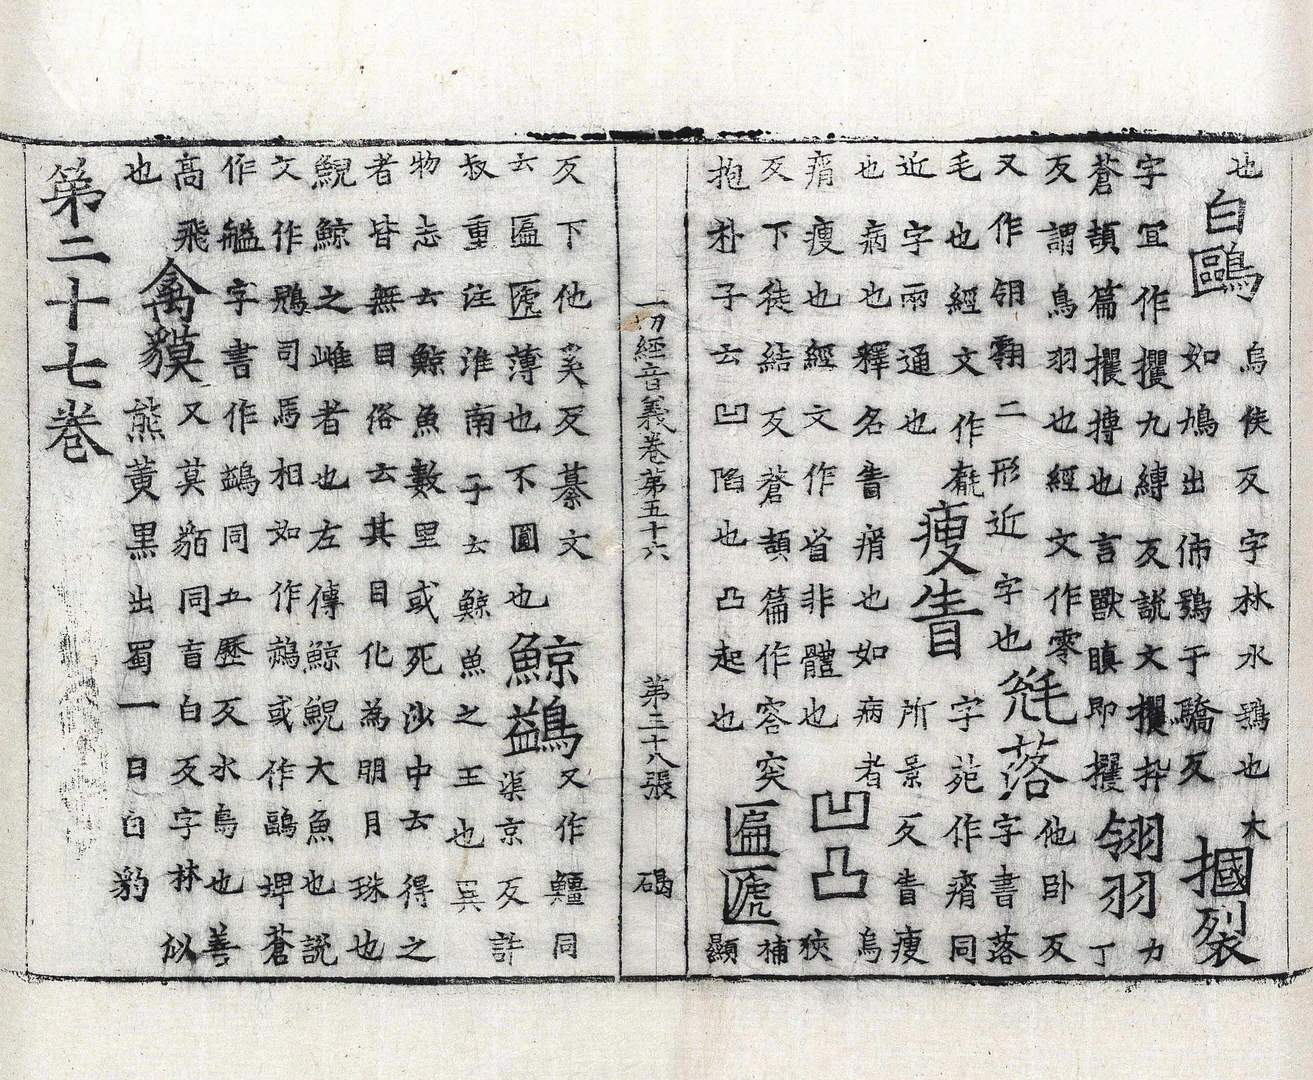 也
白鷗
烏侯反字林水鴞也大
如鳩出佈鶚于驕反
摑裂
字宜作攫九縛反說文攫扴
蒼頡篇攫搏也言獸瞋即攫
翎羽
力
丁
反謂鳥羽也經文作零
又作翎二形近字也
毨落
他卧反
字書落
毛也經文作毻
近字兩通也
瘦眚
字苑作㾪同
所景反眚瘦
也病也釋名眚㾪也如病者
㾪瘦也經文作省非體也
凹凸
烏
狹
反下徒結反蒼頡篇作容突
抱朴子云凹陷也凸起也
匾㔸
補
顯
一切經音義卷第五十六 第三十八張 碣
反下他奚反纂文
云匾㔸薄也不圓也
鯨鷁
又作䲔同
渠京反許
叔重注淮南子云鯨魚之王也異
物志云鯨魚數里或死沙中云得之
者皆無目俗云其目化為明月珠也
鯢鯨之雌者也左傳鯨鯢大魚也說
文作鶂司馬相如作鷊或作鷊埤蒼
作艗字書作鷁同五歷反水鳥也善
高飛
也
禽貘
又莫貊同盲白反字林似
熊黃黑出蜀一曰白豹
第二十七卷